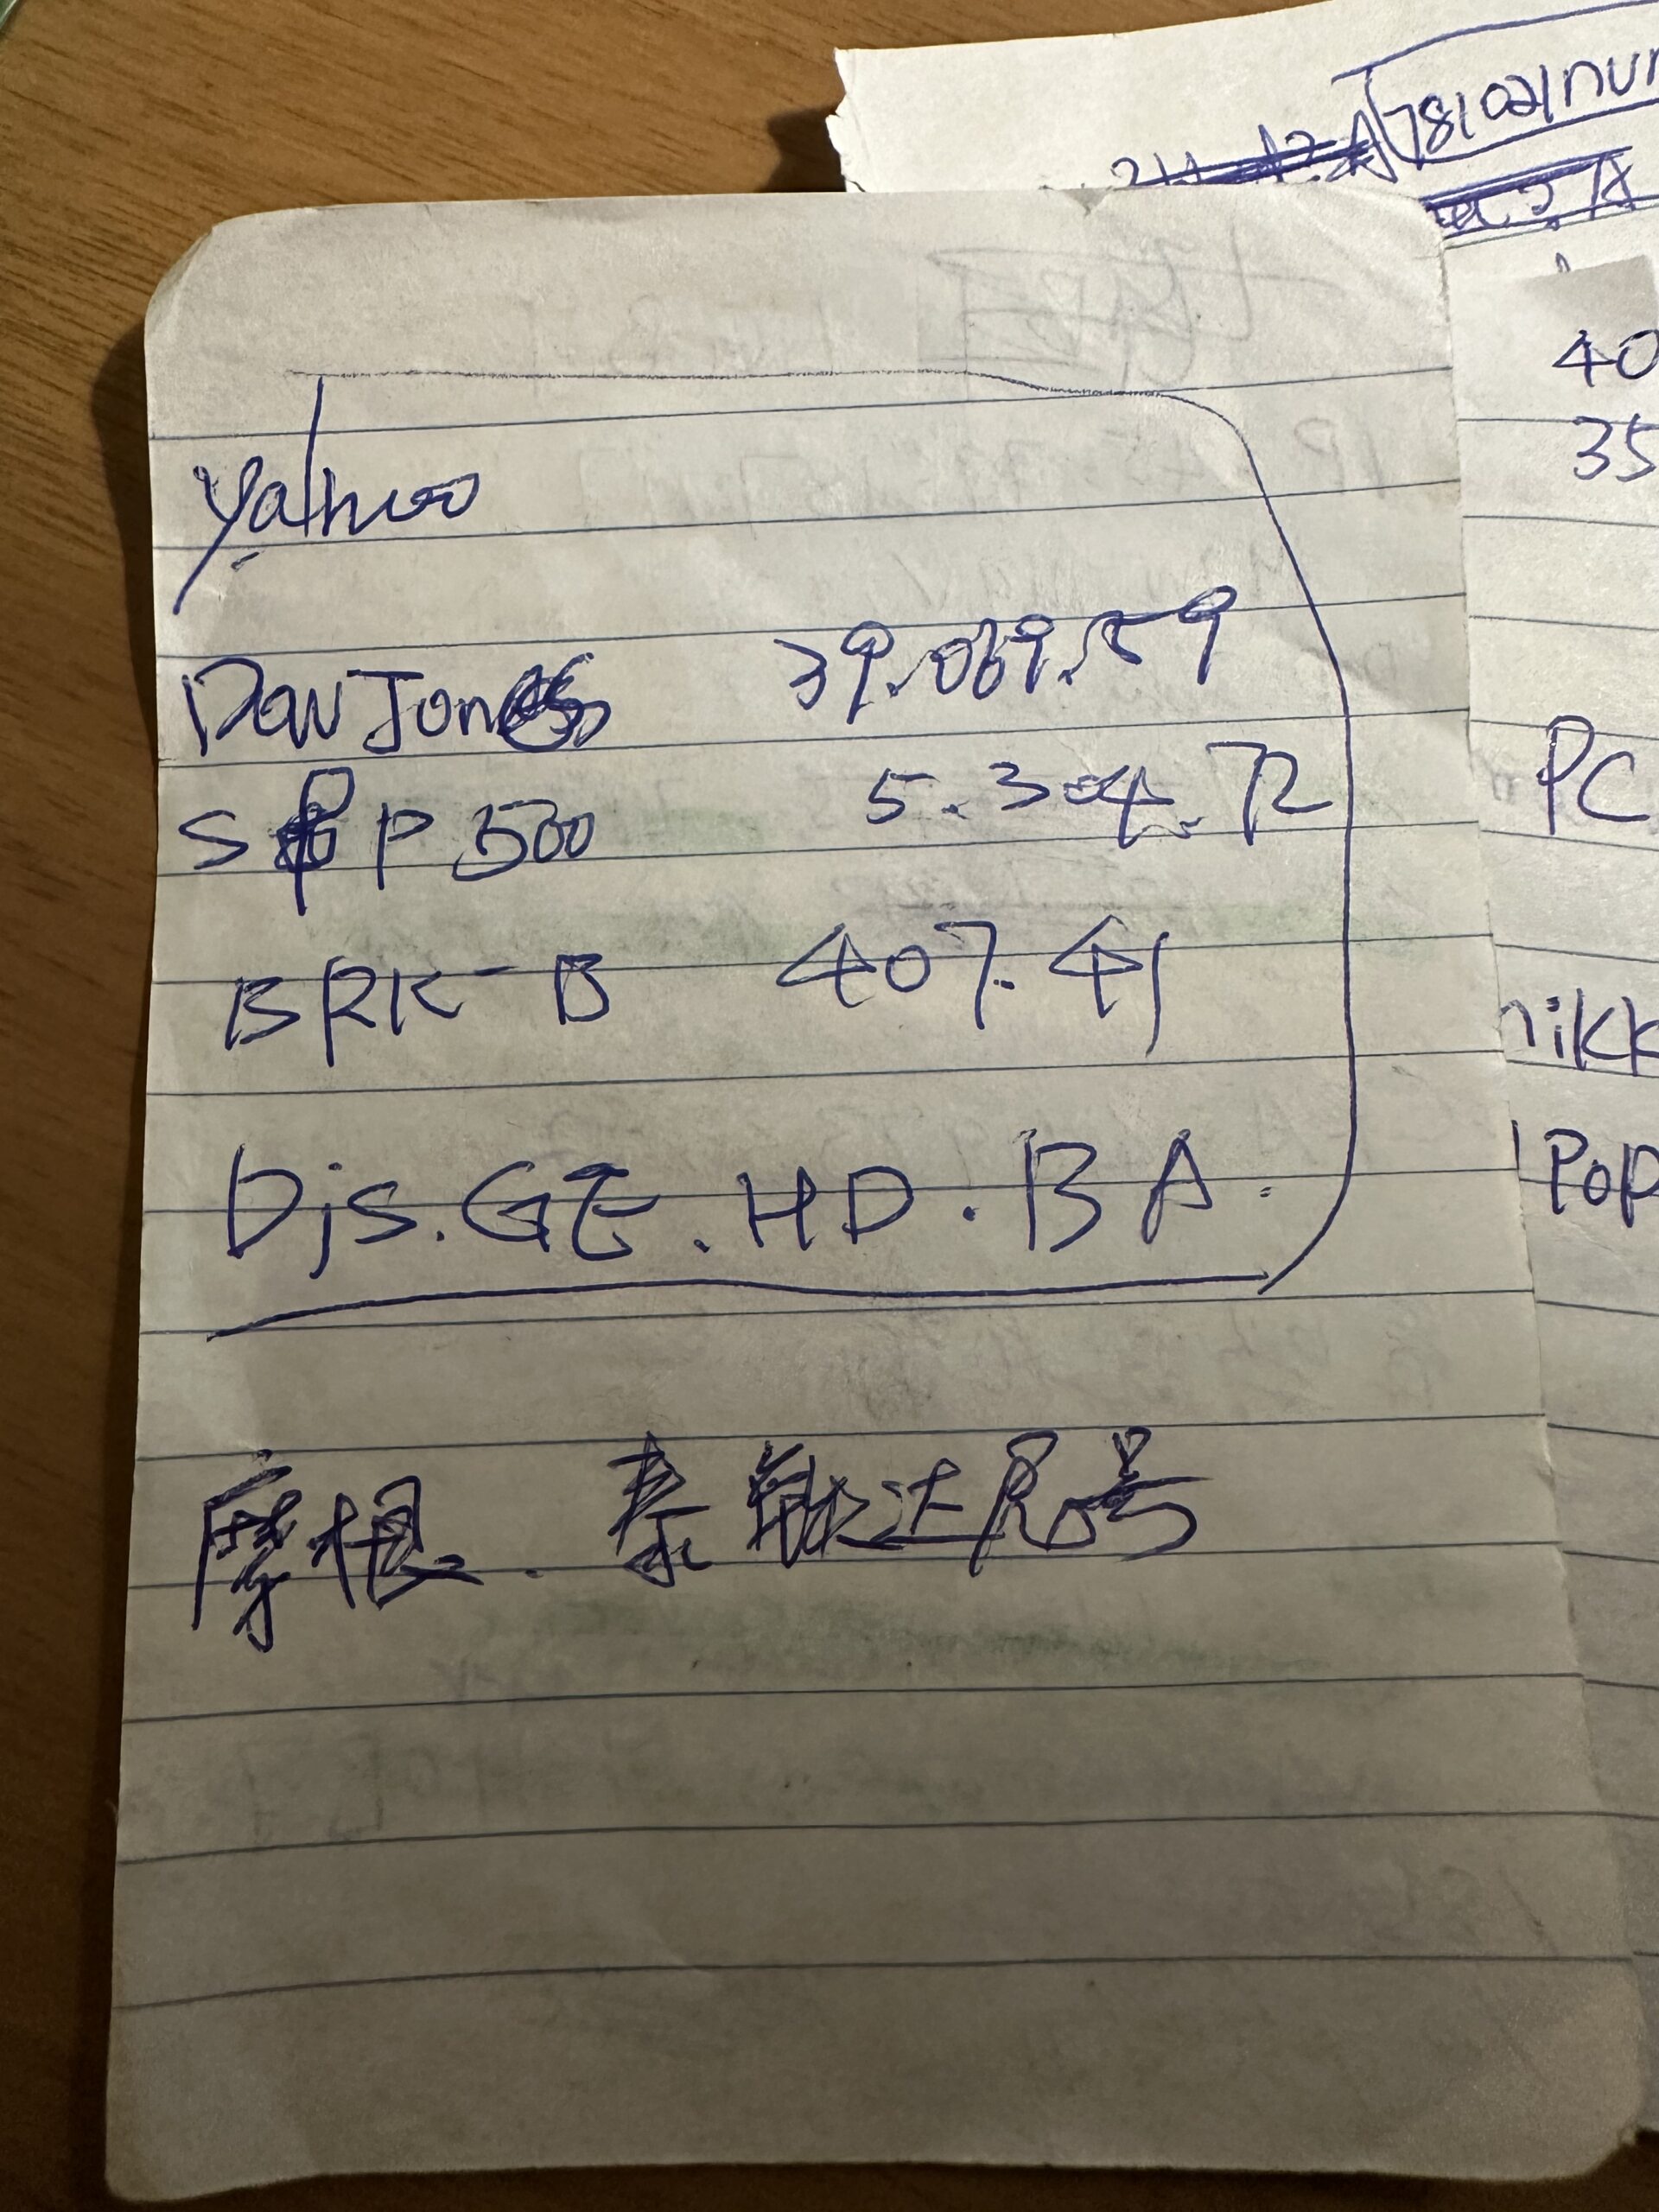 78102/nur
40
35
yahoo
Dow Jones 39.069.59
S&P 500 5.304.72
PC
BRK-B 407.41
nikk
Djs.GE.HD.BA.
Pop
摩根.泰敏达尾号